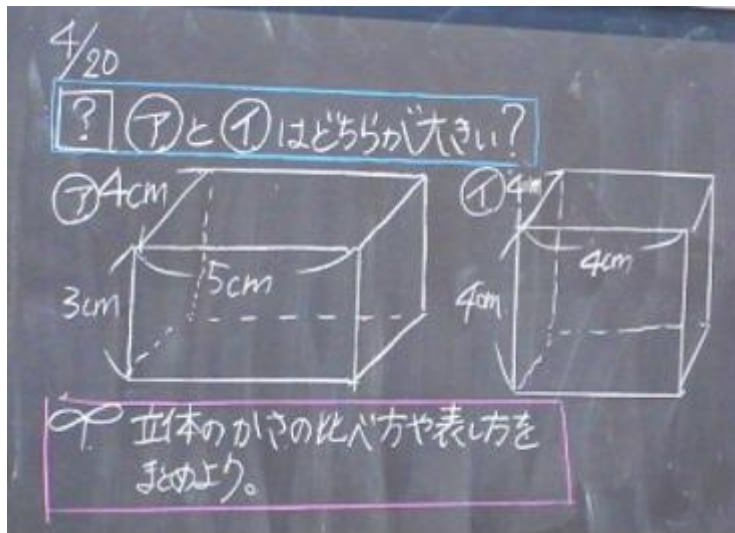 4/20
? アとイはどちらが大きい?
ア 4cm
5cm
3cm
イ 4cm
4cm
4cm
立体のかさの比べ方や表し方を
まとめよう。